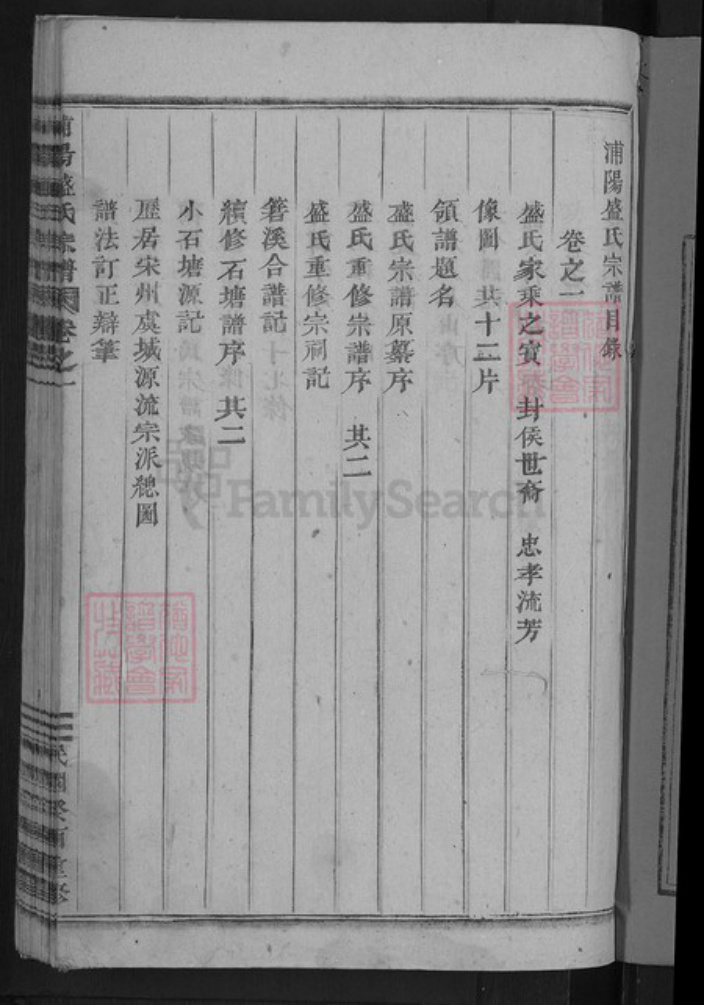 浦陽盛氏宗譜目錄
卷之一
盛氏家乘之寶 泰封侯世裔 忠孝流芳
像圖 共十二片
領譜題名
盛氏宗譜原纂序
盛氏重修宗譜序 其二
盛氏重修宗祠記
箬溪合譜記
續修石塘譜序 其二
小石塘源記
歷居宋州虞城源流宗派總圖
譜法訂正辯筆
浦陽盛氏宗譜 卷之一
民國癸酉重修
FamilySearch